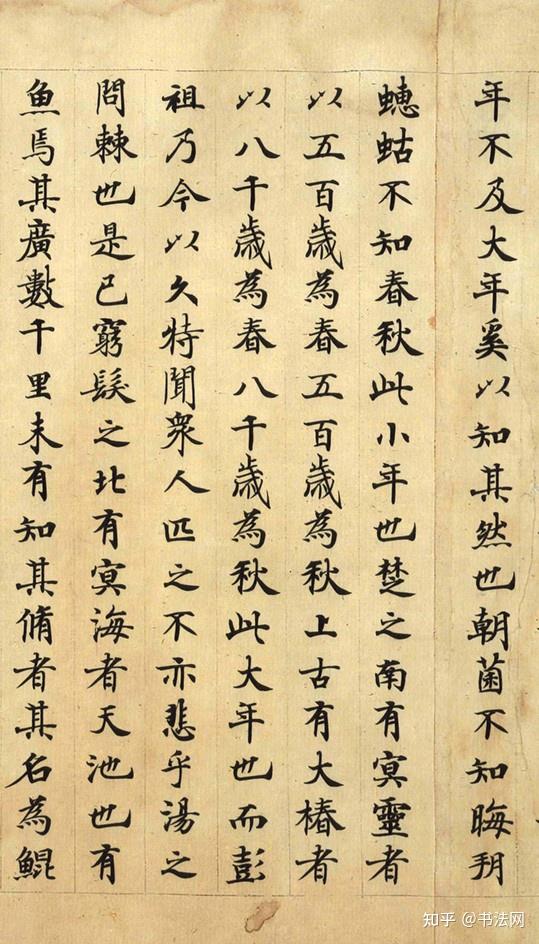 年不及大年奚以知其然也朝菌不知晦朔
蟪蛄不知春秋此小年也楚之南有冥靈者
以五百歲為春五百歲為秋上古有大椿者
以八千歲為春八千歲為秋此大年也而彭
祖乃今以久特聞衆人匹之不亦悲乎湯之
問棘也是已窮髮之北有冥海者天池也有
魚焉其廣數千里未有知其脩者其名為鯤
知乎 @书法网